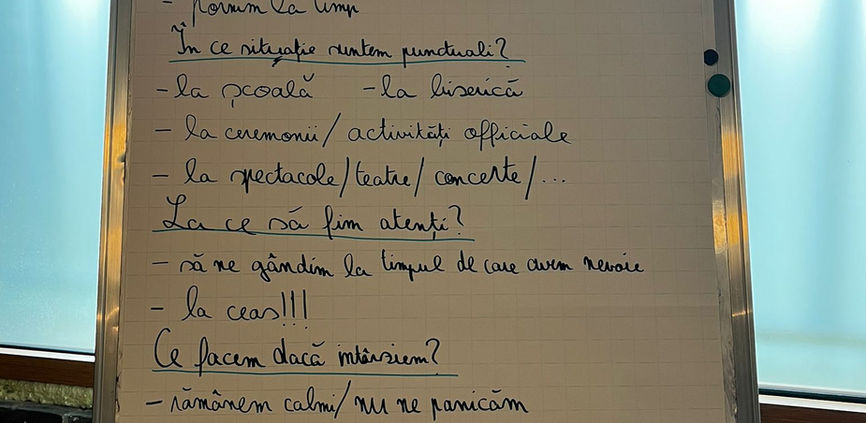 - pornim la timp
În ce situație suntem punctuali?
- la școală - la biserică
- la ceremonii/activități officiale
- la spectacole/teatre/concerte/...
La ce să fim atenți?
- să ne gândim la timpul de care avem nevoie
- la ceas!!!
Ce facem dacă întârziem?
- rămânem calmi/nu ne panicăm